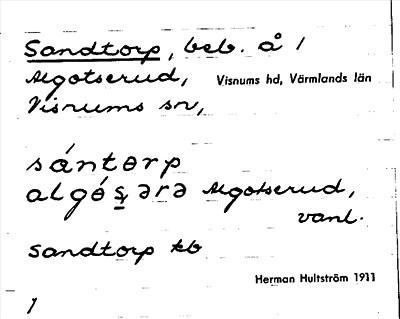 Sandtorp, beb. å 1
Algotserud, Visnums hd, Värmlands län
Visnums sn,
sántørp
algǿs̱ərə Algotserud,
vanl.
Sandtorp tb
Herman Hultström 1911
1